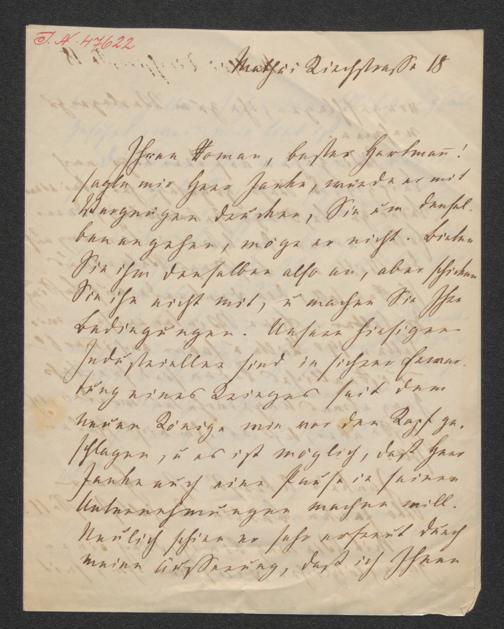 I.N. 47622
Mathäi Kirchstrasse 18
Ihren Roman, bester Hartmann!
sagte mir Herr Janke, würde er mit
Vergnügen drucken, Sie um densel-
ben angehen, möge er nicht. Bieten
Sie ihm denselben also an, aber schicken
Sie ihn nicht mit, u machen Sie Ihre
Bedingungen. Unsere hiesigen
Industriellen sind in sicherer Erwar-
tung eines Krieges seit dem
neuen Könige wie vor den Kopf ge-
schlagen, u es ist möglich, daß Herr
Janke auch eine Pause in seinen
Unternehmungen machen will.
Neulich schien er sehr erfreut durch
meine Äusserung, daß ich Ihren